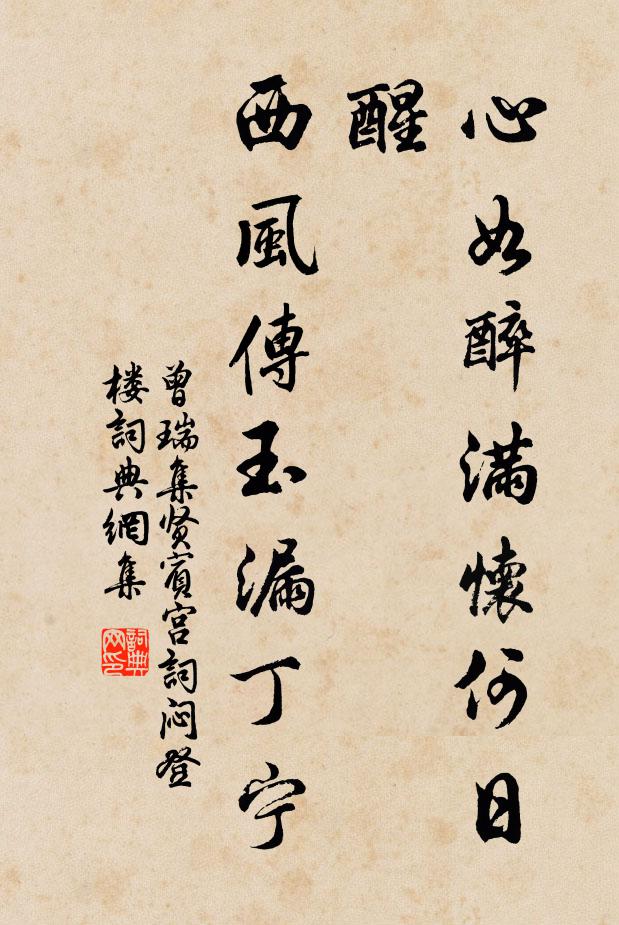 心如醉滿懷何日
醒
西風傳玉漏丁宁
曾瑞集贤賓宫詞闷登
楼詞典網集
詞典
网印